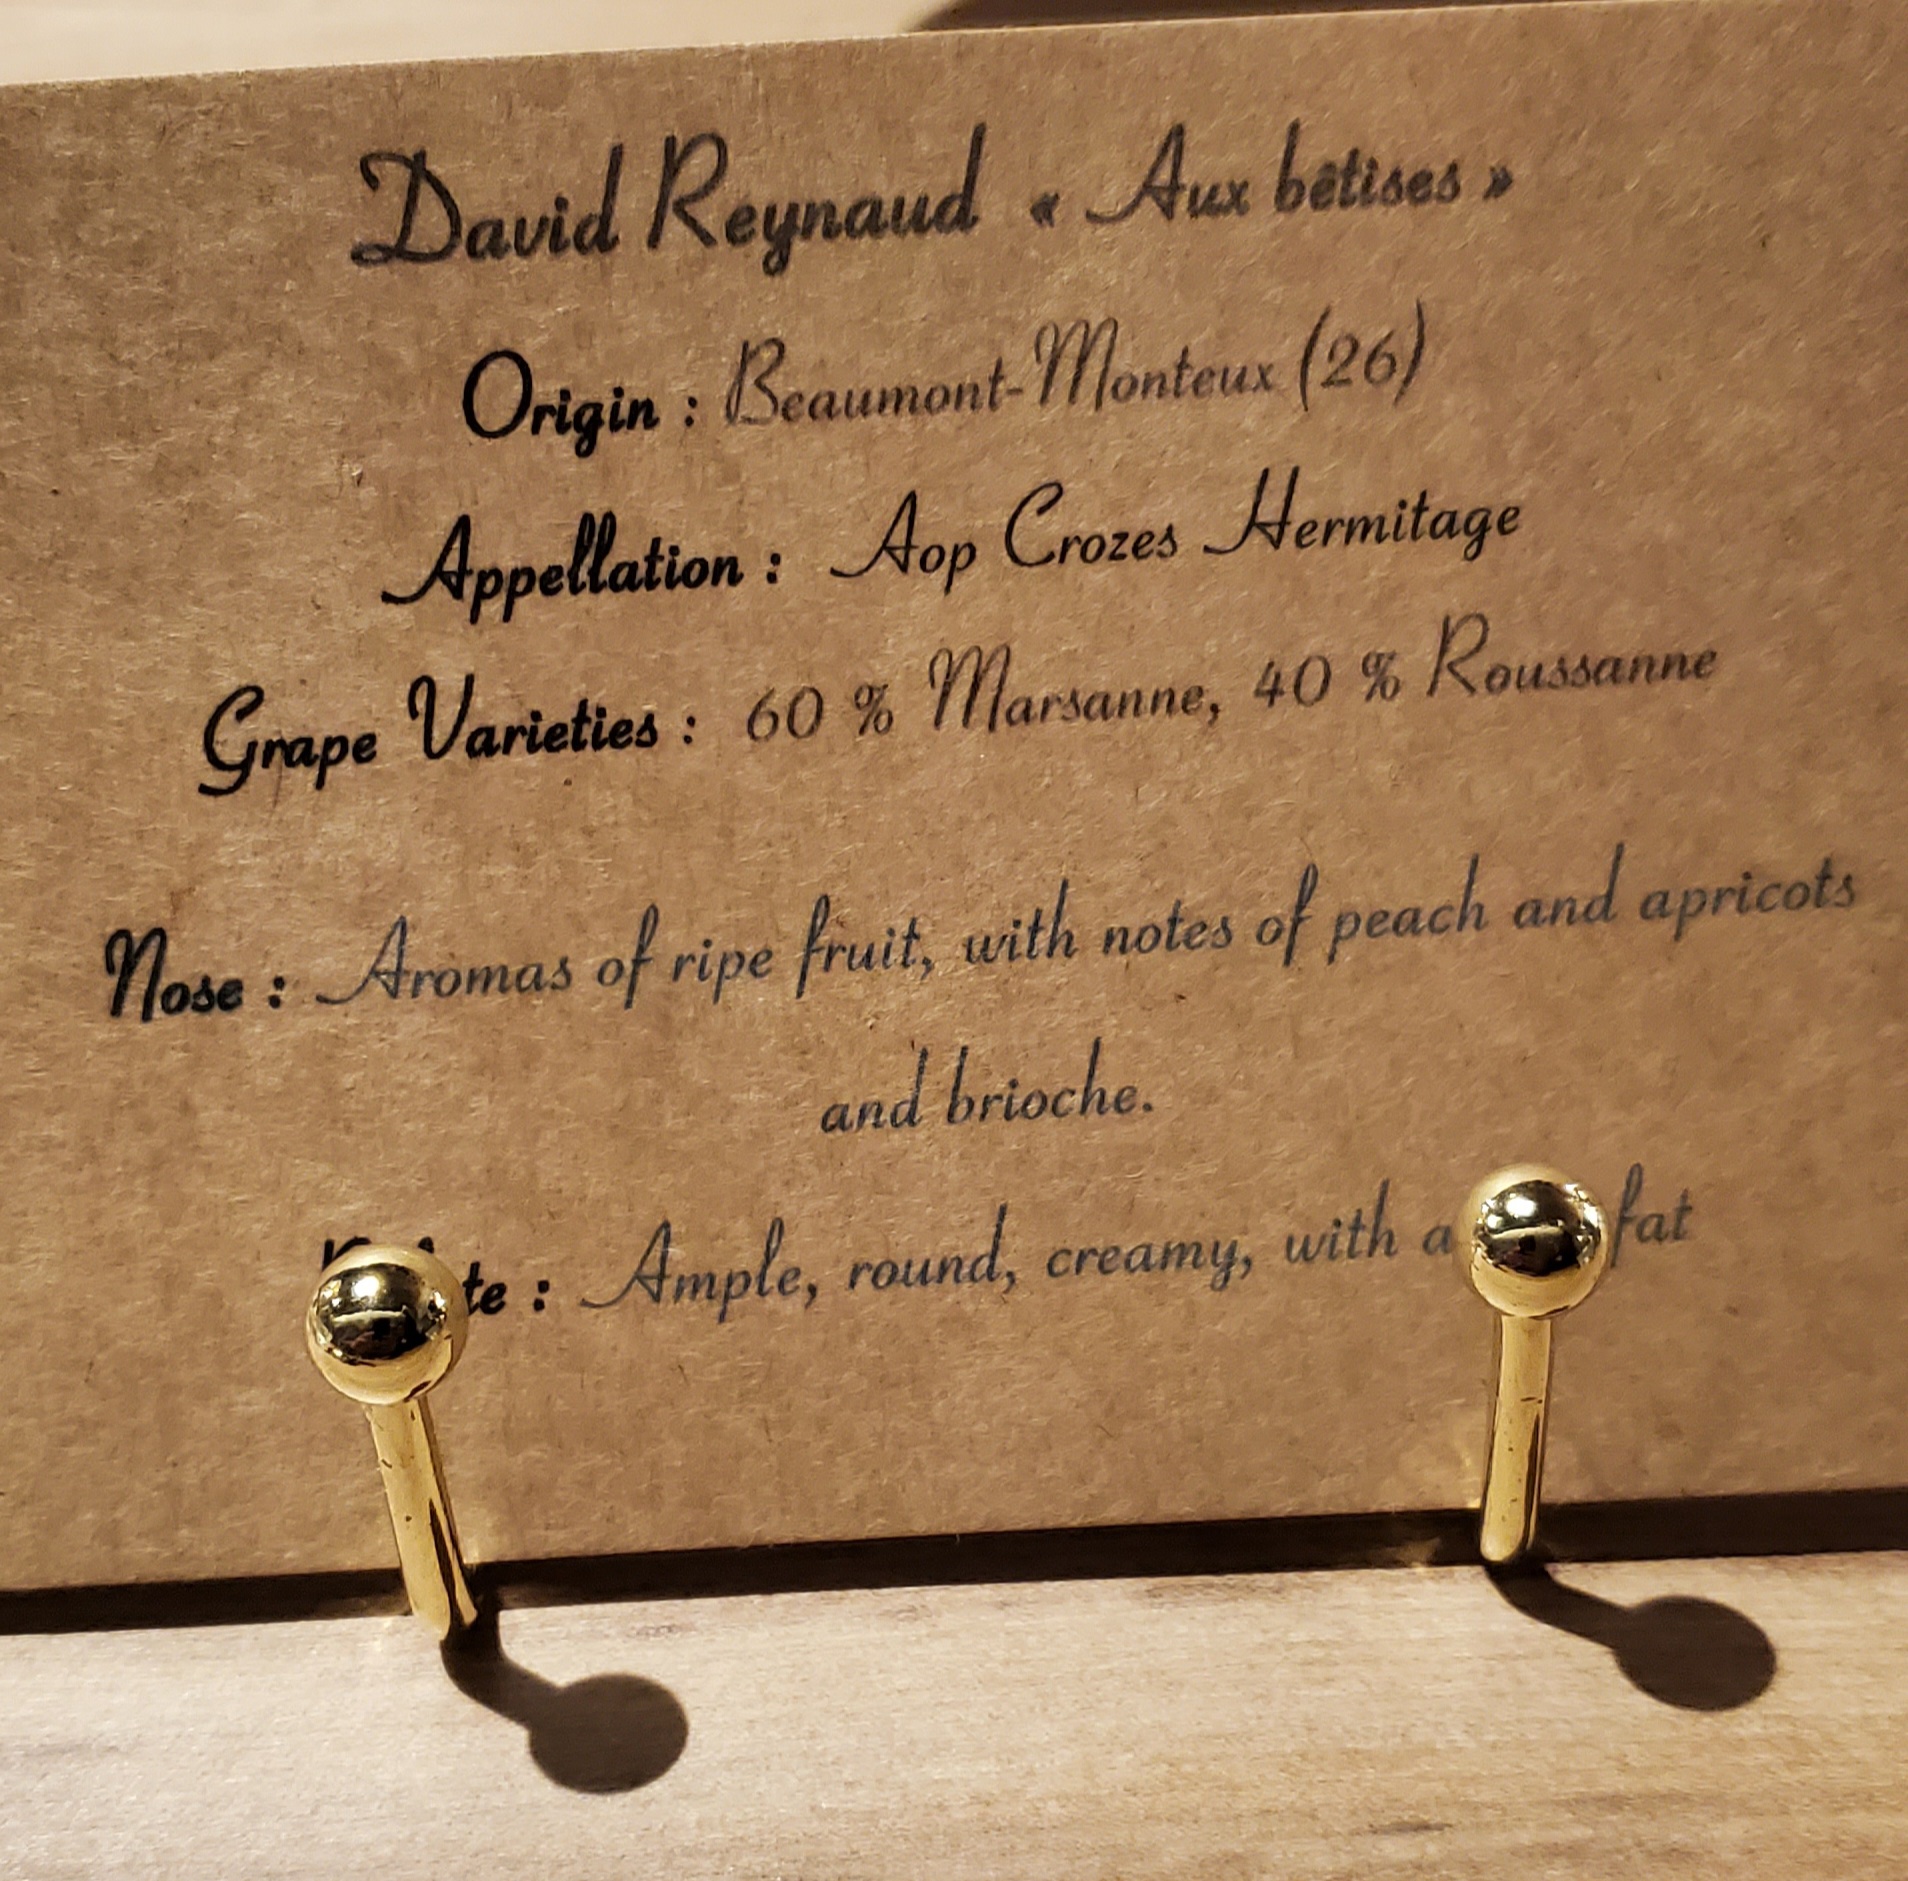 David Reynaud « Aux bêtises »
Origin : Beaumont-Monteux (26)
Appellation : Aop Crozes Hermitage
Grape Varieties : 60 % Marsanne, 40 % Roussanne
Nose : Aromas of ripe fruit, with notes of peach and apricots
and brioche.
: Ample, round, creamy, with a fat